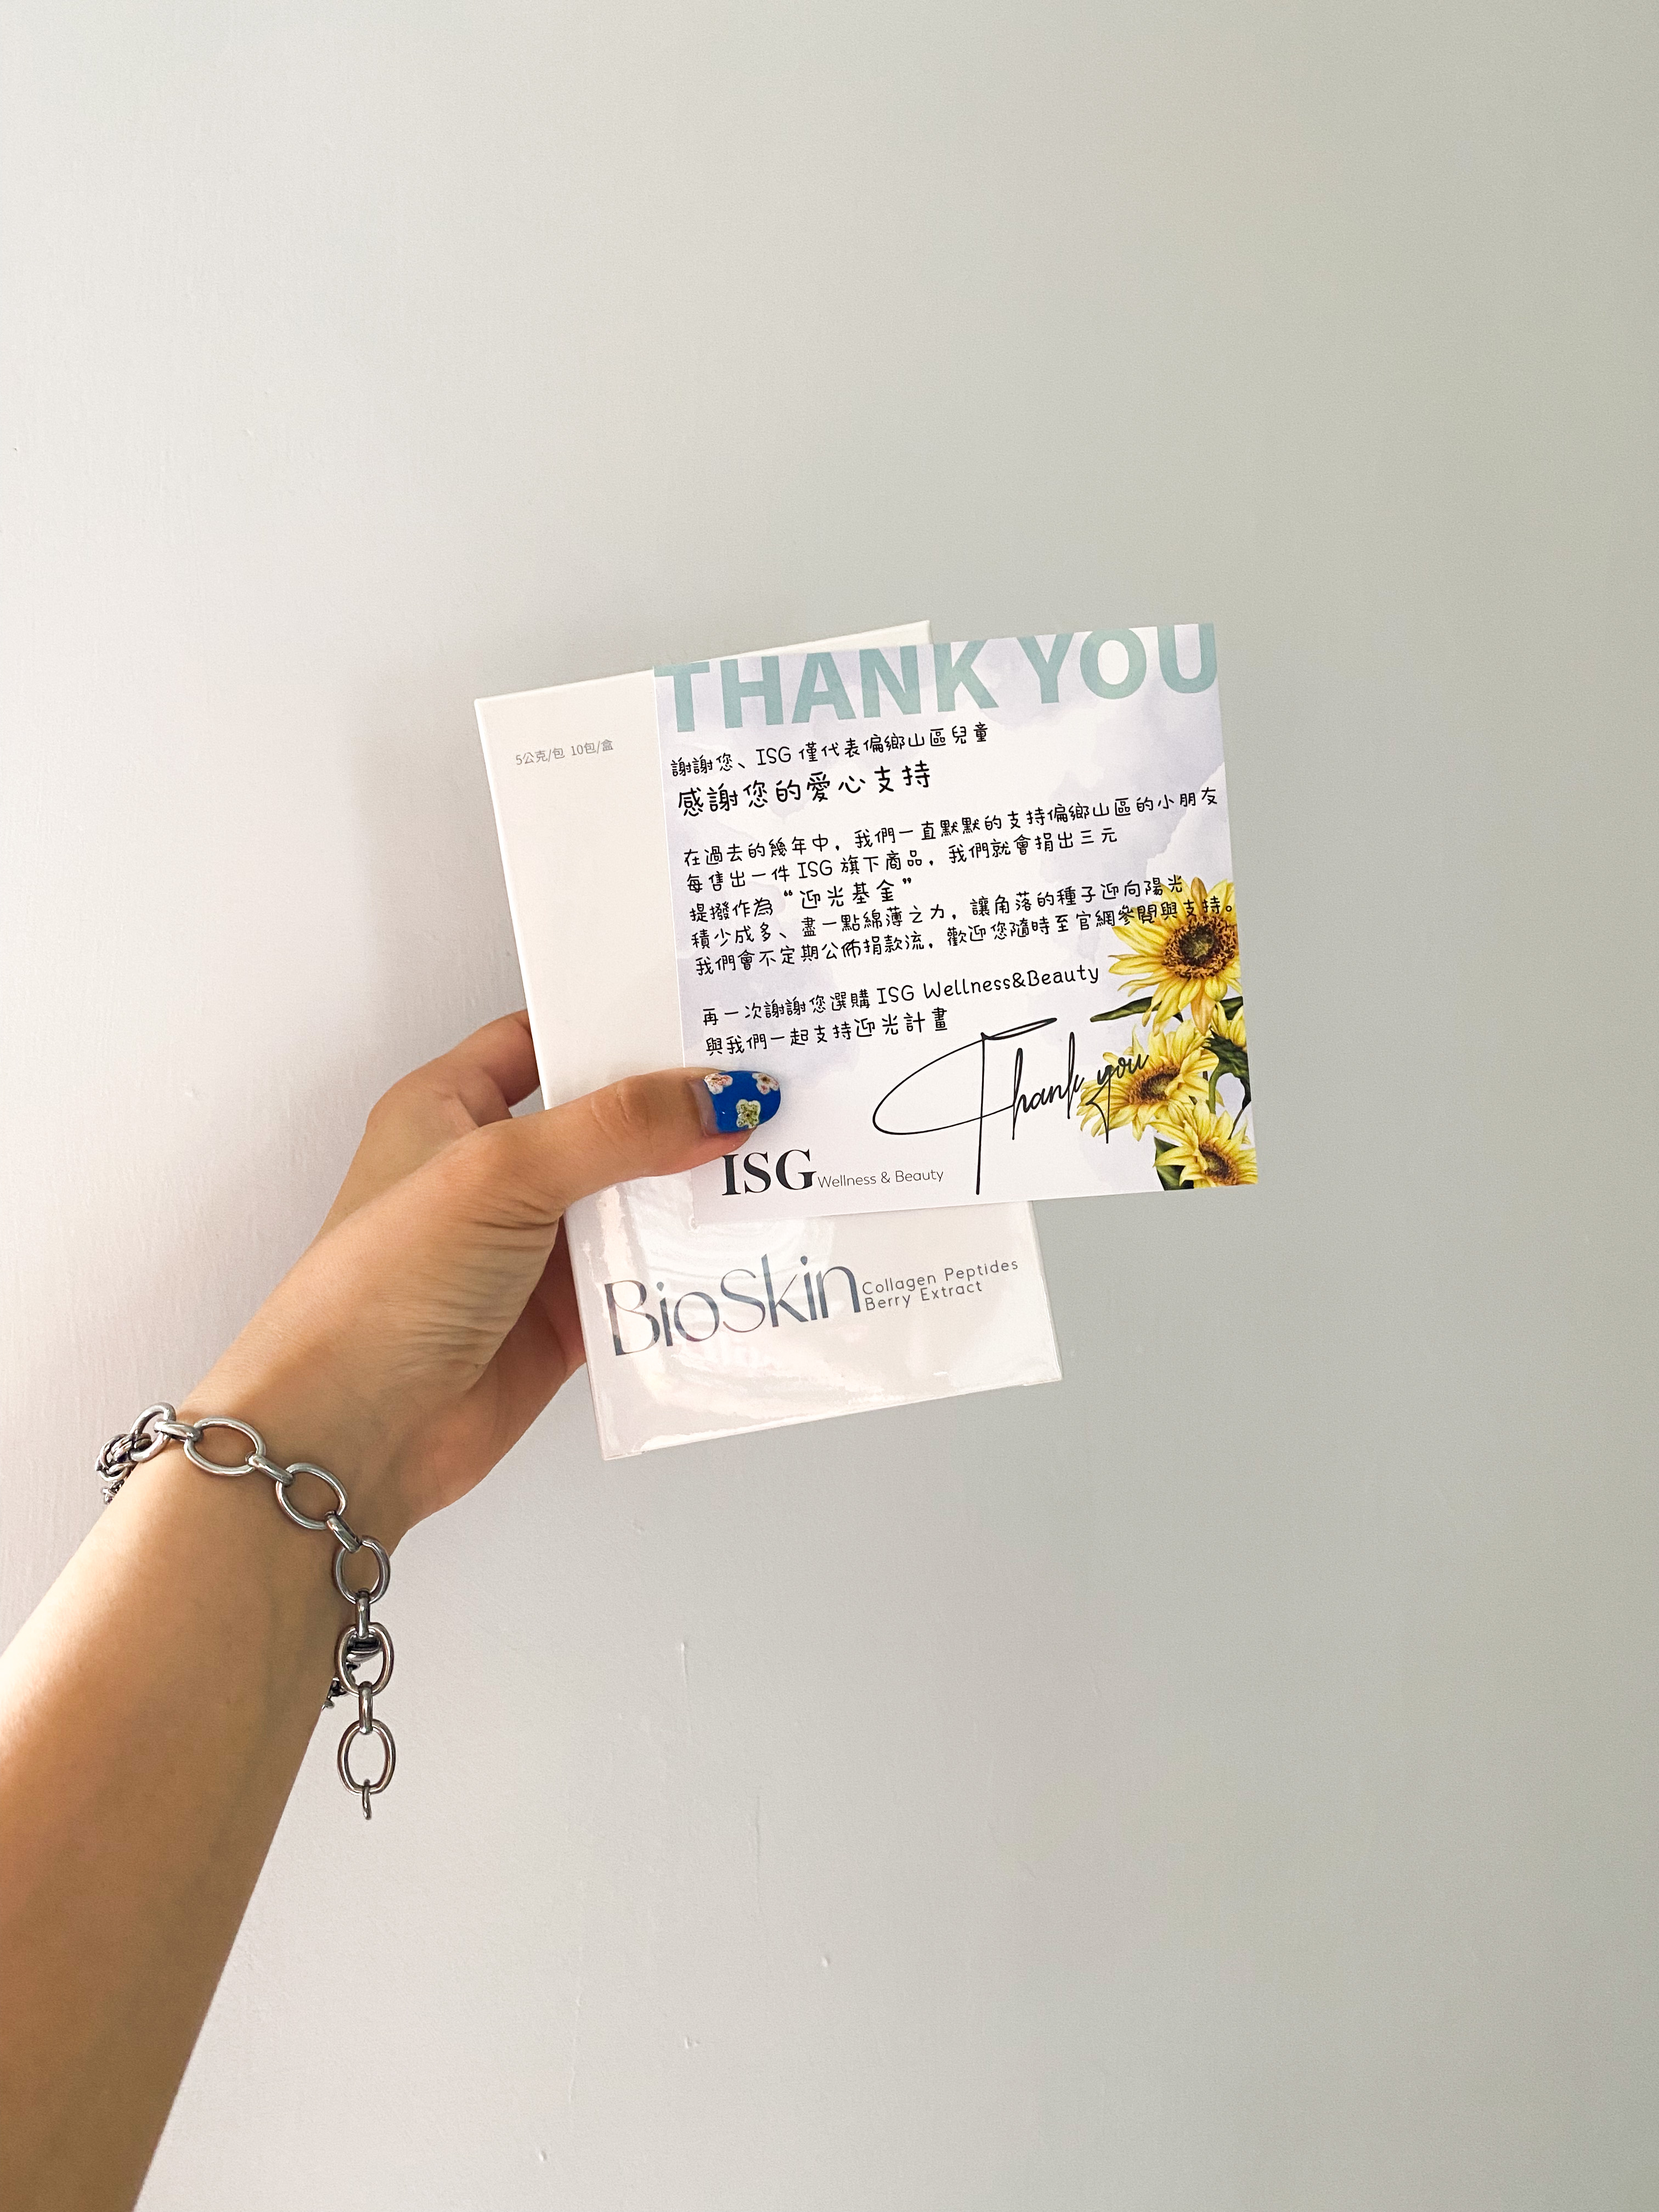 5公克/包 10包/盒
THANK YOU
謝謝您、ISG 僅代表偏鄉山區兒童
感謝您的愛心支持
在過去的幾年中，我們一直默默的支持偏鄉山區的小朋友
每售出一件 ISG 旗下商品，我們就會捐出三元
提撥作為 “迎光基金”
積少成多、盡一點綿薄之力，讓角落的種子迎向陽光
我們會不定期公佈捐款流，歡迎您隨時至官網參閱與支持。
再一次謝謝您選購 ISG Wellness&Beauty
與我們一起支持迎光計畫
Thank you
ISG Wellness & Beauty
BioSkin Collagen Peptides
Berry Extract